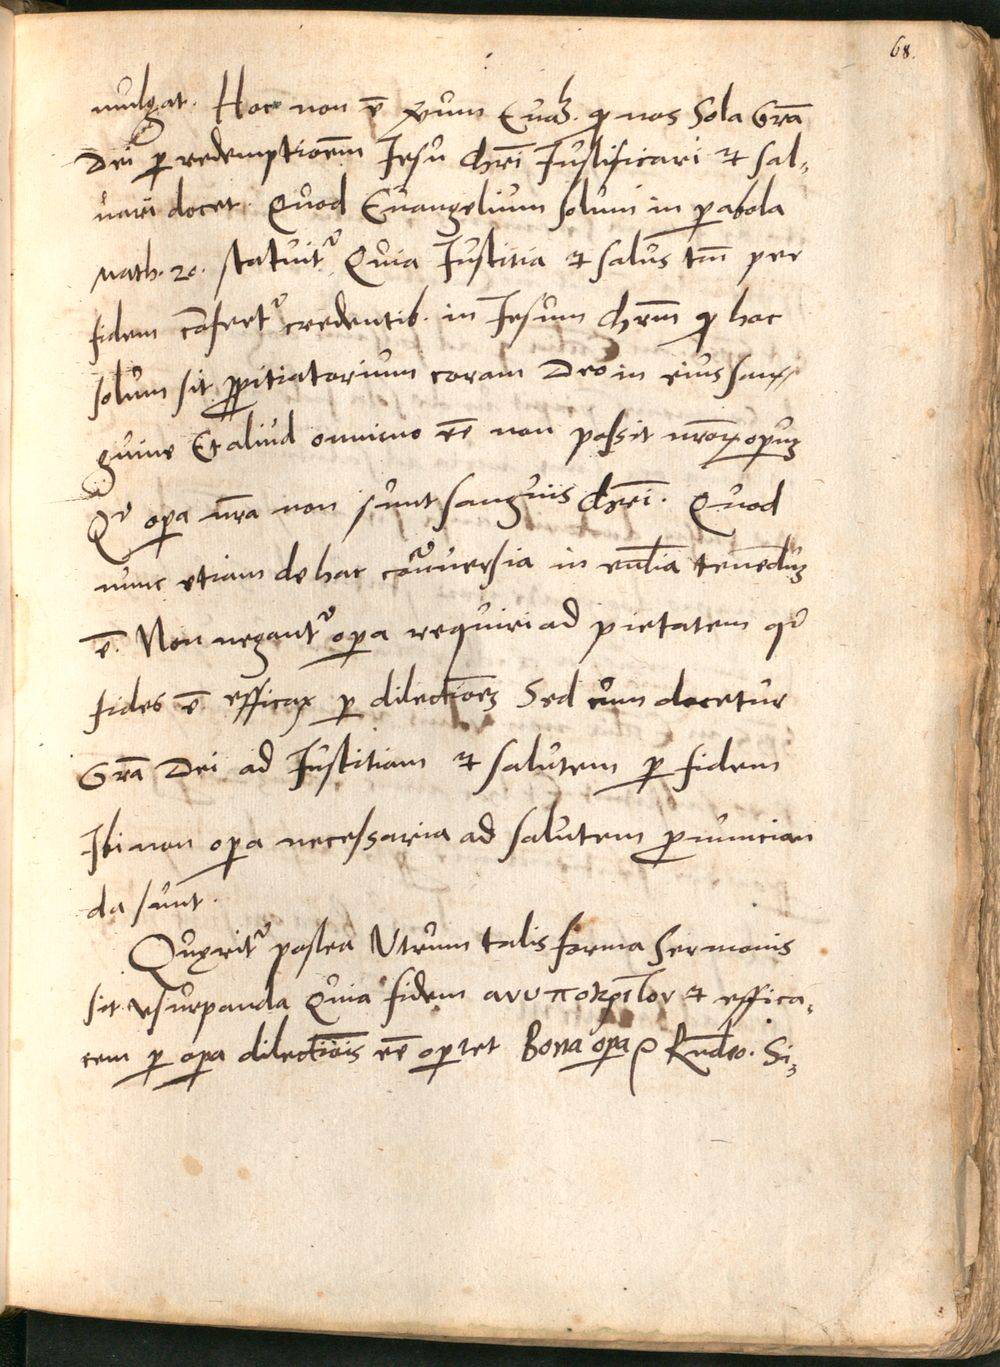 68.
mulgat. Hoc non ē verum Euāg. qͥ nos Sola Grā
Dei ꝑ redemptionēm Jesu Chrī Justificari et sal-
uari docet. Quod Euangelium solum in parabola
Math. 20. statuitᵘʳ Quia Justitia et salus tm̄ per
fidem cōfertᵘʳ credentib. in Jesum Chrm̄ qͥ hoc
solum sit ꝓpitiatorium coram Deo in eius san-
guine Et aliud omnino eē non possit nr̄oꝝ operum
Qᵃ opa nr̄a non sunt sanguis Chrī. Quod
nunc etiam de hac cōtrouersia in eccl̄ia tenendū
ē. Non negantᵘʳ opa requiri ad pietatem qᵃ
fides ē efficax ꝑ dilectionē Sed cum docetur
Grā Dei ad Justitiam et salutem ꝑ fidem
Ibi non opa necessaria ad salutem pnuncian
da sunt.
Quęritᵘʳ postea Utrum talis forma Sermonis
sit usurpanda Quia fidem ανυποκριτον et effica-
cem ꝑ opa dilectiōis eē oportet Bona opa Rn̄deo. Si-